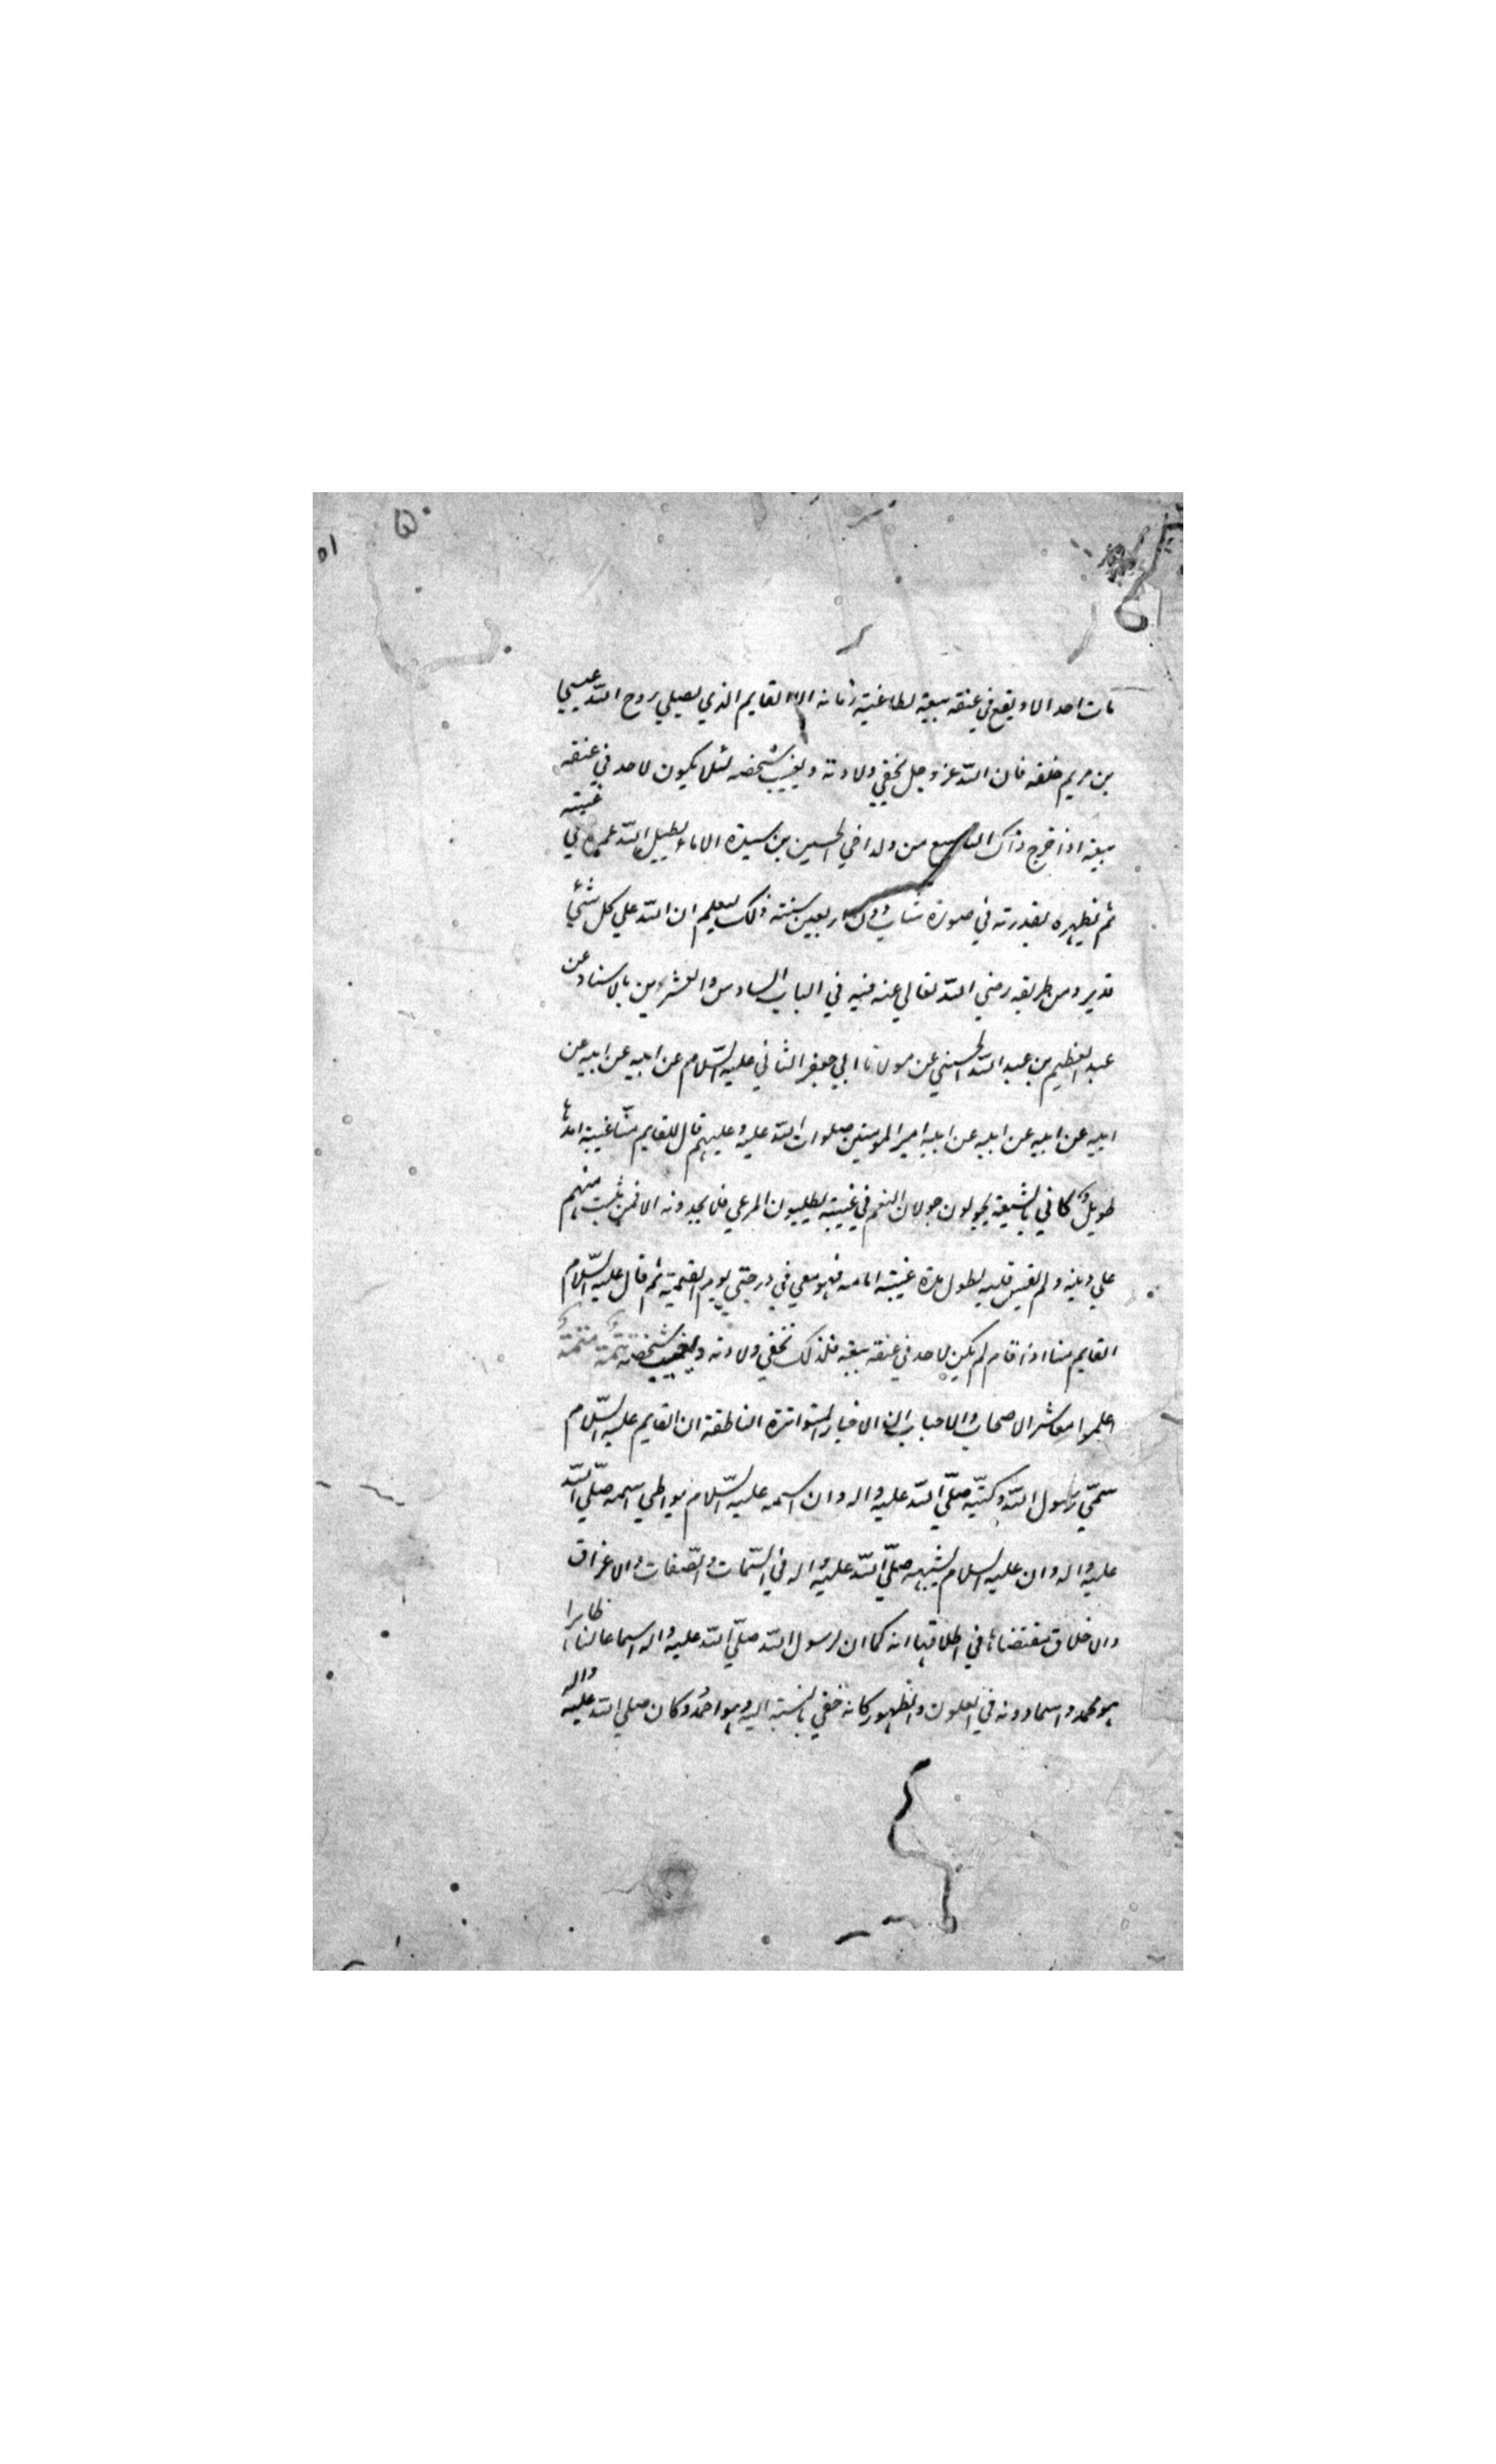 ٥١
مات احد الا ويقع في عنقه بيعة لطاغية زمانه الا القايم الذي يصلي روح الله عيسي
بن مريم خلفه فان الله عز وجل يخفي ولادته ويغيب شخصه لئلا يكون لاحد في عنقه
بيعة اذا خرج ذاك التاسع من ولد اخي الحسين بن سيدة الاماء يطيل الله عمره في غيبته
ثم يظهره بقدرته في صورة شاب دون اربعين سنة ذلك ليعلم ان الله علي كل شئ
قدير ومن طريقه رضي الله تعالي عنه فيه في الباب السادس والعشرين بالاسناد عن
عبد العظيم بن عبد الله الحسني عن مولانا ابي جعفر الثاني عليه السّلام عن ابيه عن ابيه عن
ابيه عن ابيه عن ابيه عن ابيه امير المومنين صلوات الله عليه وعليهم قال للقايم منّا غيبة امدها
طويل كاني بالشيعة يجولون جولان النعم في غيبته يطلبون المرعي فلا يجدونه الا فمن ثبت منهم
علي دينه ولم يقس قلبه لطول مدة غيبة امامه فهو معي في درجتي يوم القيمة ثم قال عليه السّلام
القايم منا اذا قام لم يكن لاحد في عنقه بيعة فلذلك تخفي ولادته ويغيب شخصه
اعلموا معاشر الاصحاب والاحباب ان الاخبار المتواترة الناطقة ان القايم عليه السّلام
سمّي رسول الله وكنيّه صلّي الله عليه واله وان اسمه عليه السّلام يواطي اسمه صلّي الله
عليه واله وان عليه السلام يشبهه صلّي الله عليه واله في السّمات والصّفات والاعراق
والاخلاق مقتضاها في اطلاقها انه كما ان لرسول الله صلّي الله عليه واله اسما عالنا ظاهرا
هو محمد واسما دونه في العلون والظهور كانه خفي بالنسبة اليه وهو احمد وكان صلي الله عليه واله